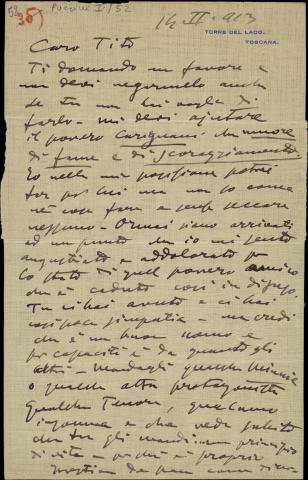 52
35)
Puccini I/52
14 II. 913
TORRE DEL LAGO.
TOSCANA.
Caro Tito
Ti domando un favore e
non devi negarmelo anche
se tu non hai voglia di
farlo - mi devi ajutare
il povero Carignani che muore
di fame e di scoraggiamento.
Io nella mia posizione potrei
far per lui ma non so come
nè cosa fare e senza seccare
nessuno - Ormai siamo arrivati
ad un punto che io mi sento
angustiato e addolorato per
lo stato di quel povero amico
che è caduto così in
Tu ci hai avuto e ci hai
simpatia - ma credi
che è un buon uomo e
per capacità è da quanto gli
altri - mandagli qualche
o qualche altra protagonista
qualche Tenore, qualcuno
insomma e che veda subito
che tu gli mandi un principio
di vita - perchè è proprio